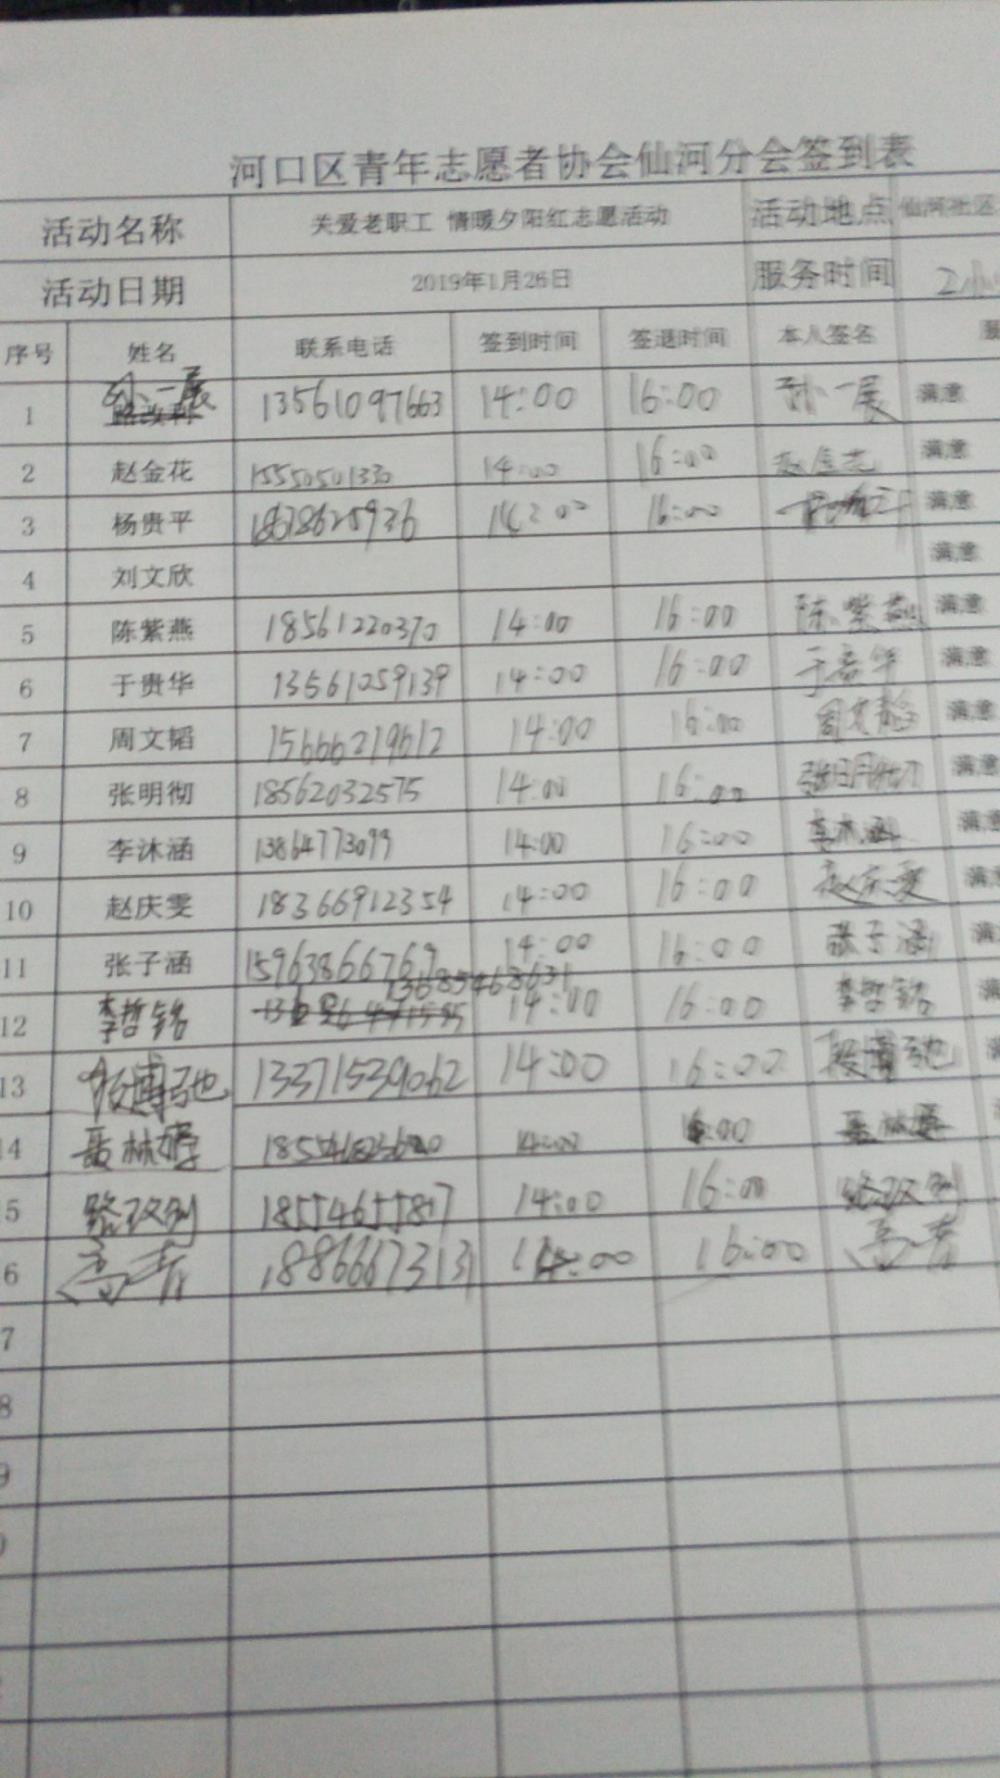 河口区青年志愿者协会仙河分会签到表
活动名称 关爱老职工 情暖夕阳红志愿活动 活动地点 仙河社区
活动日期 2019年1月26日 服务时间 2小
序号 姓名 联系电话 签到时间 签退时间 本人签名 服
1 孙一展 13561097663 14:00 16:00 孙一展 满意
2 赵金花 15550501330 14:00 16:00 满意
3 杨贵平 18678625936 14:00 16:00 满意
4 刘文欣 满意
5 陈紫燕 18561220370 14:00 16:00 陈紫燕 满意
6 于贵华 13561059139 14:00 16:00 于贵华 满意
7 周文韬 15666219612 14:00 16:00 周文韬 满意
8 张明彻 18562032575 14:00 16:00 张明彻 满意
9 李沐涵 13864773099 14:00 16:00 李沐涵 满意
10 赵庆雯 18366912354 14:00 16:00 赵庆雯 满
11 张子涵 15963866769 14:00 16:00 张子涵 满
12 李哲铭 13685468631 14:00 16:00 李哲铭 满
13 段博弛 13371539062 14:00 16:00 段博弛
4 14:00 16:00
5 路改利 18554655817 14:00 16:00 路改利
6 18866673131 14:00 16:00
7
8
9